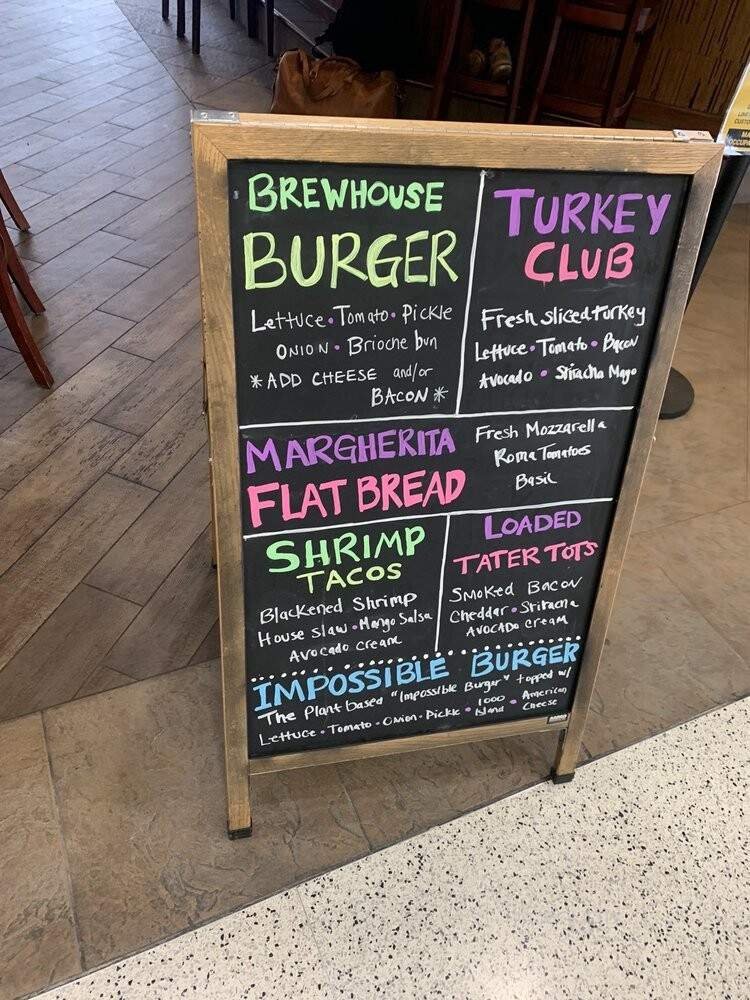 BREWHOUSE
BURGER
Lettuce • Tomato • Pickle
ONION • Brioche bun
* ADD CHEESE and/or
BACON *
TURKEY
CLUB
Fresh sliced turkey
Lettuce • Tomato • Bacon
Avocado • Sriracha Mayo
MARGHERITA
FLAT BREAD
Fresh Mozzarella
Roma Tomatoes
Basil
SHRIMP
TACOS
Blackened Shrimp
House slaw • Mango Salsa
Avocado cream
LOADED
TATER TOTS
Smoked Bacon
Cheddar • Sriracha
AVOCADO cream
IMPOSSIBLE BURGER
The Plant based "Impossible Burger" topped w/
Lettuce • Tomato • Onion • Pickle • 1000 Island • American Cheese